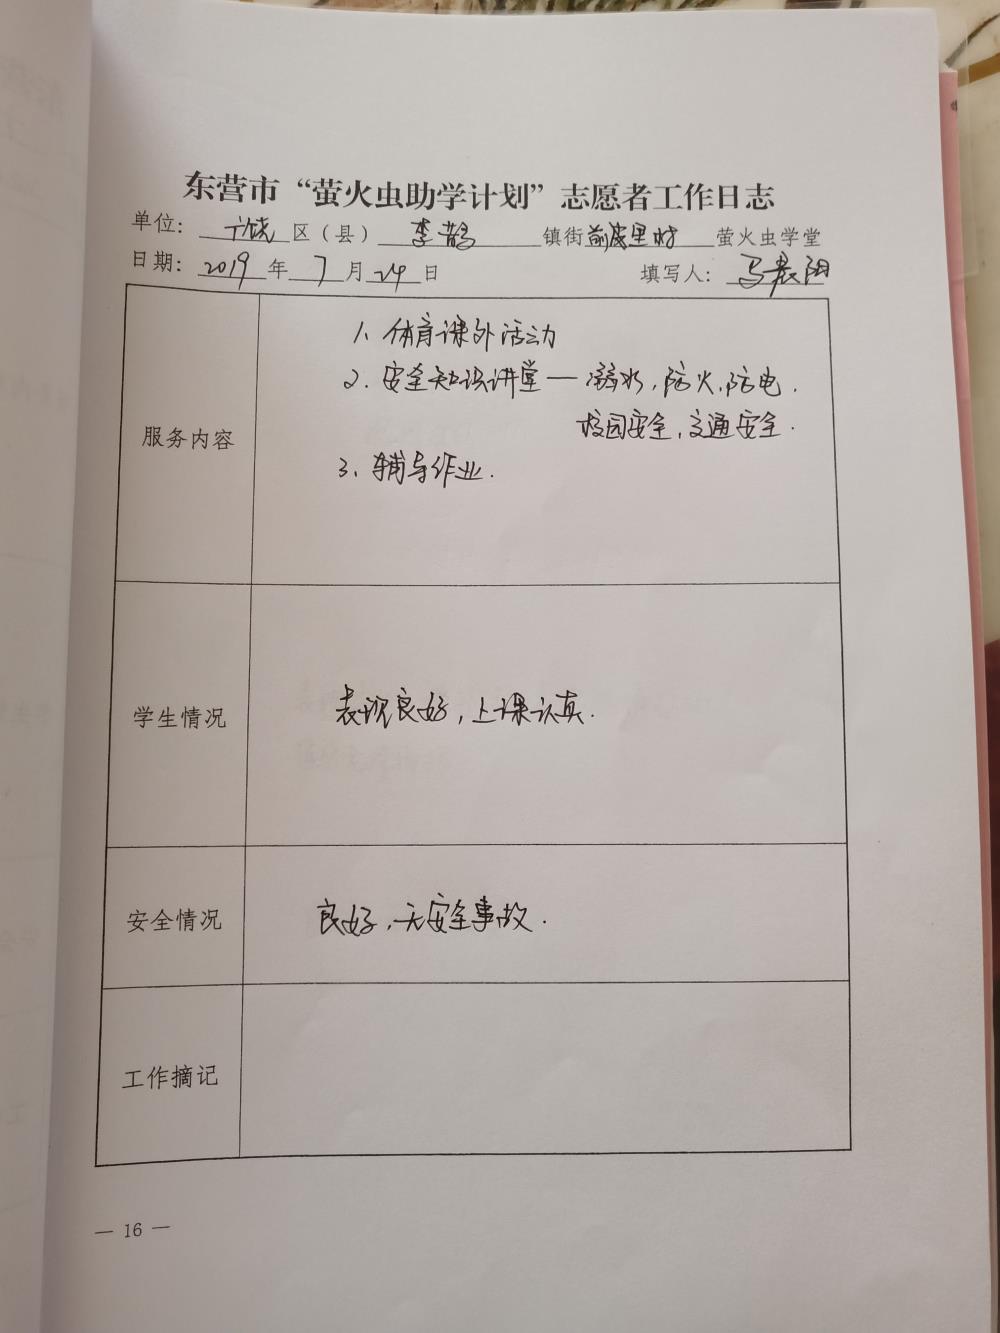 东营市“萤火虫助学计划”志愿者工作日志
单位：广饶区（县）李鹊镇街前 里村萤火虫学堂
日期：2019年7月24日 填写人：马晨阳
服务内容
1、体育课外活动
2．安全知识讲堂—溺水，防火，防电．
校园安全，交通安全．
3、辅导作业．
学生情况
表现良好，上课认真．
安全情况
良好，无安全事故．
工作摘记
— 16 —